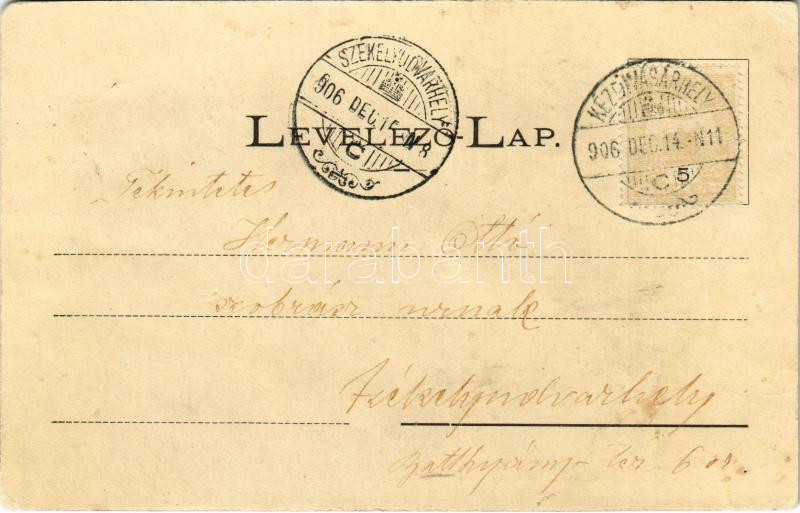 SZÉKELYUDVARHELY
906 DEC. 15. N 8
C
KÉZDIVÁSÁRHELY
906 DEC. 14. - N11
C
5
LEVELEZŐ-LAP.
Tekintetes
Hermann Ottó
darabanth
szobrász urnak
Székelyudvarhely
Batthyány- tér 6